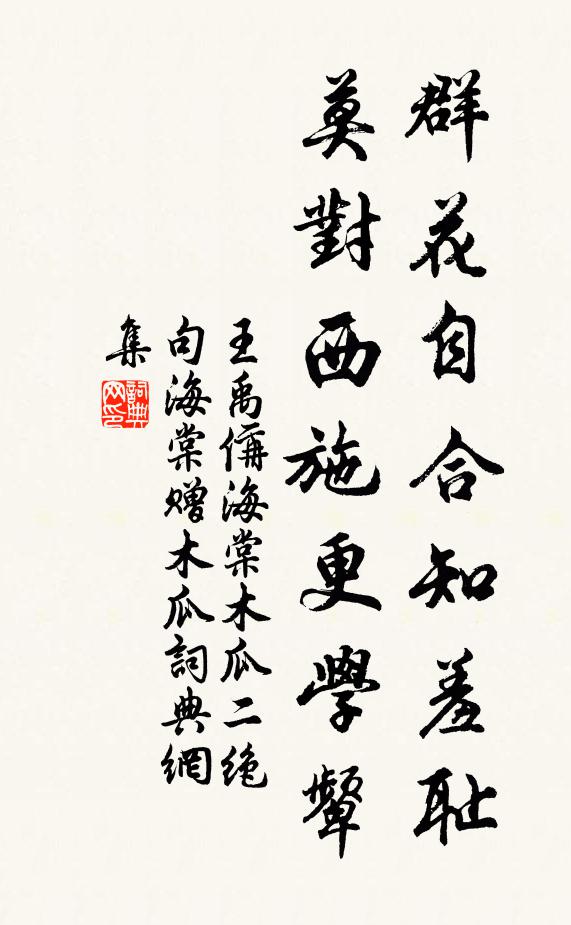 群花自合知羞耻
莫對西施更學顰
王禹偁海棠木瓜二絶
句海棠贈木瓜詞典網
集
詞典网印